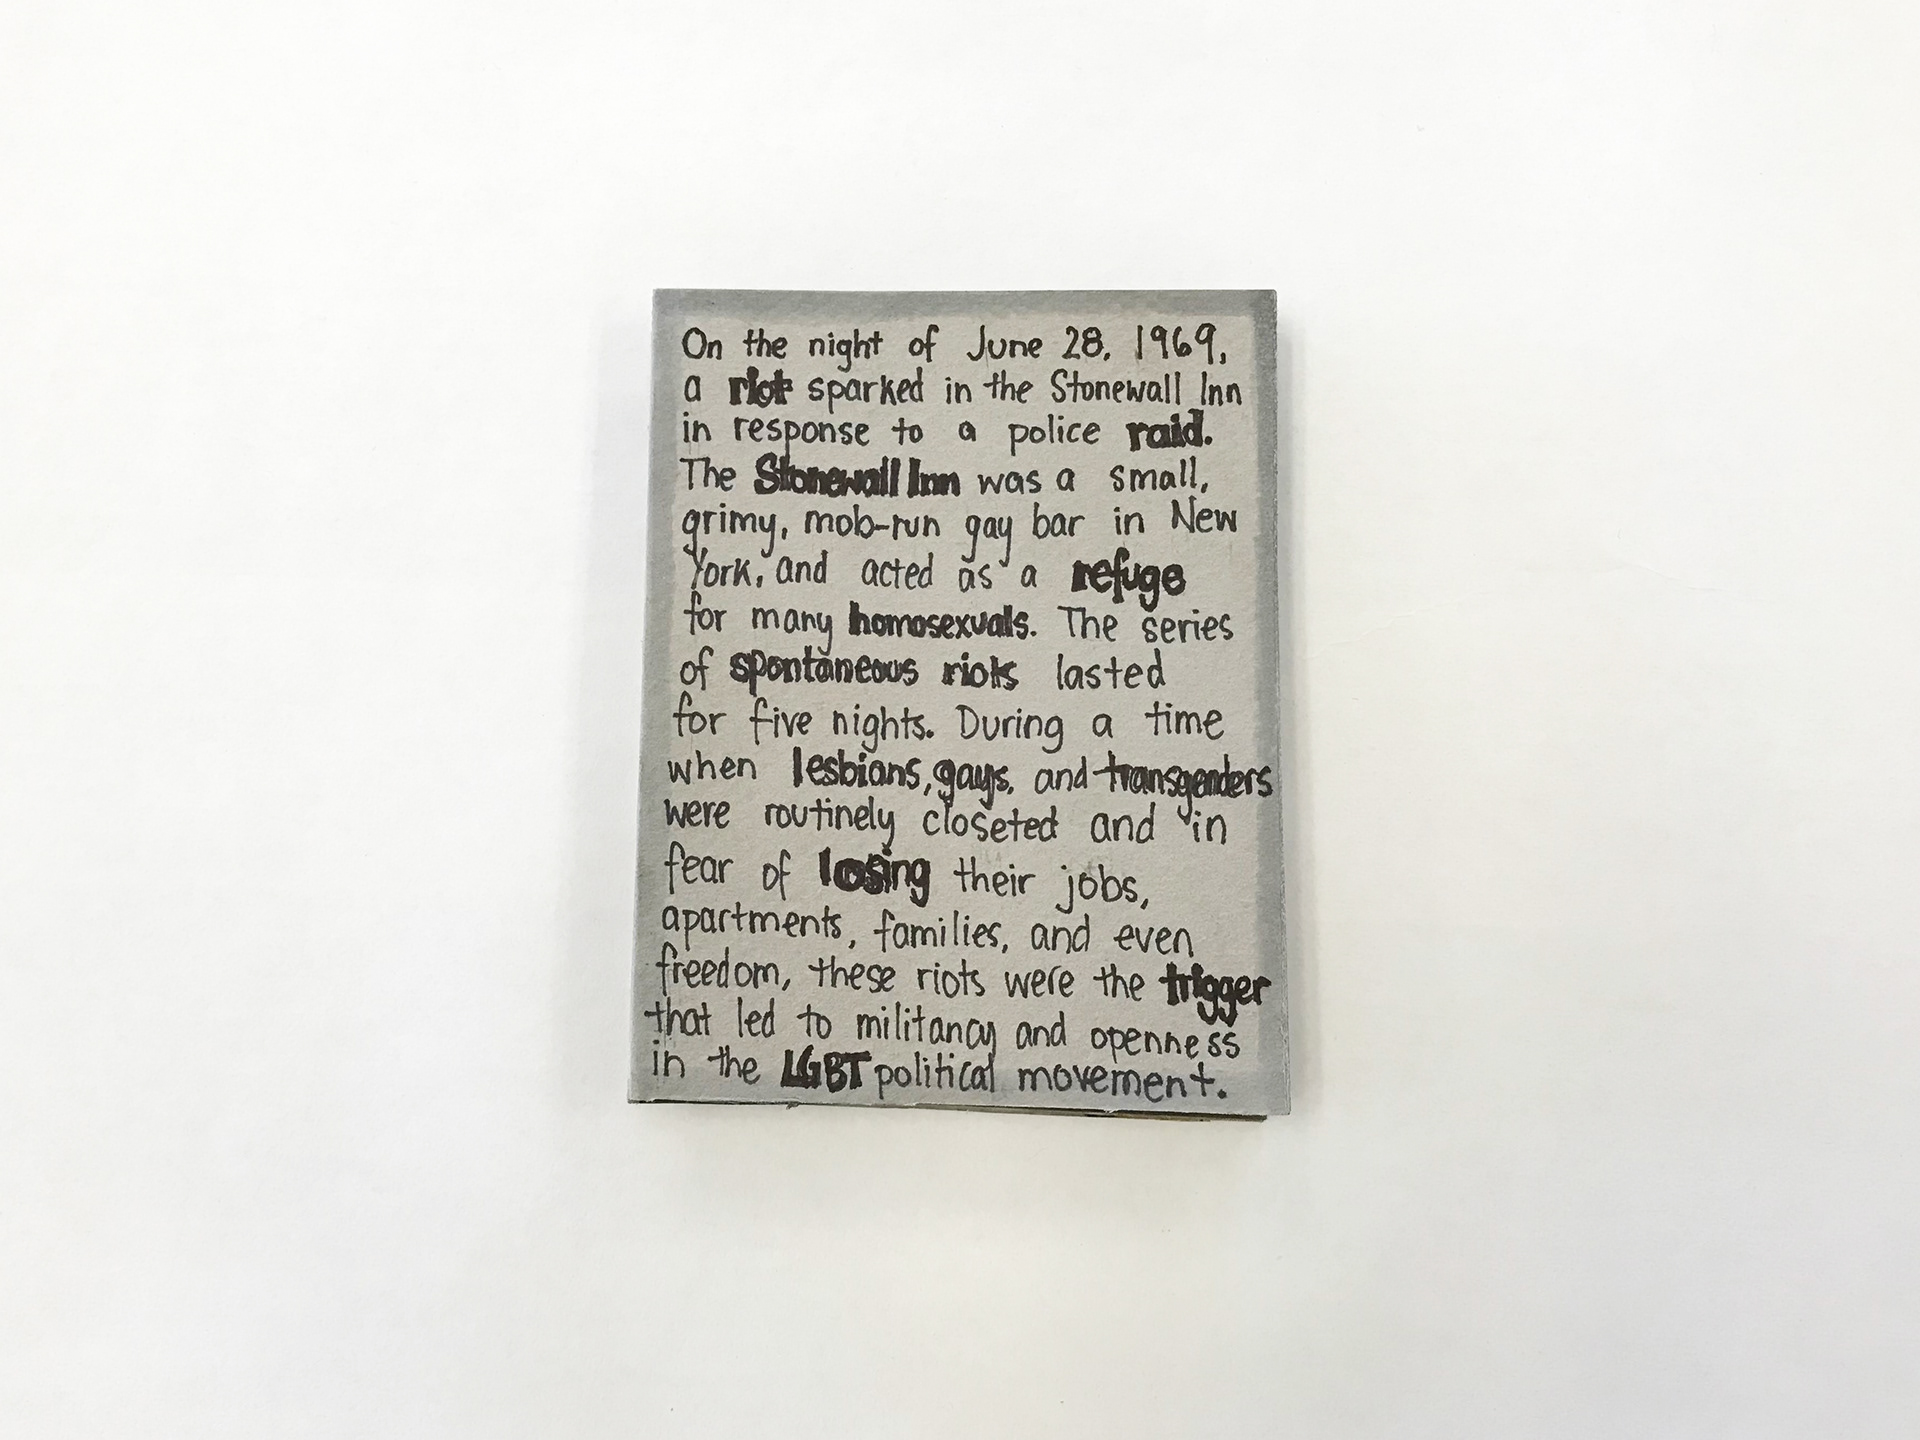 On the night of June 28, 1969,
a riot sparked in the Stonewall Inn
in response to a police raid.
The Stonewall Inn was a small,
grimy, mob-run gay bar in New
York, and acted as a refuge
for many homosexuals. The series
of spontaneous riots lasted
for five nights. During a time
when lesbians, gays, and transgenders
were routinely closeted and in
fear of losing their jobs,
apartments, families, and even
freedom, these riots were the trigger
that led to militancy and openness
in the LGBT political movement.